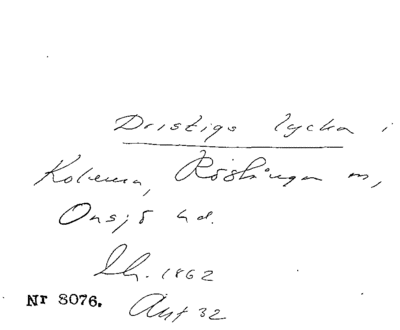 Dristiga lycka i
Kolema, Röstånga m,
Onsjö hd.
Lh. 1862
Nr 8076. Ant 32